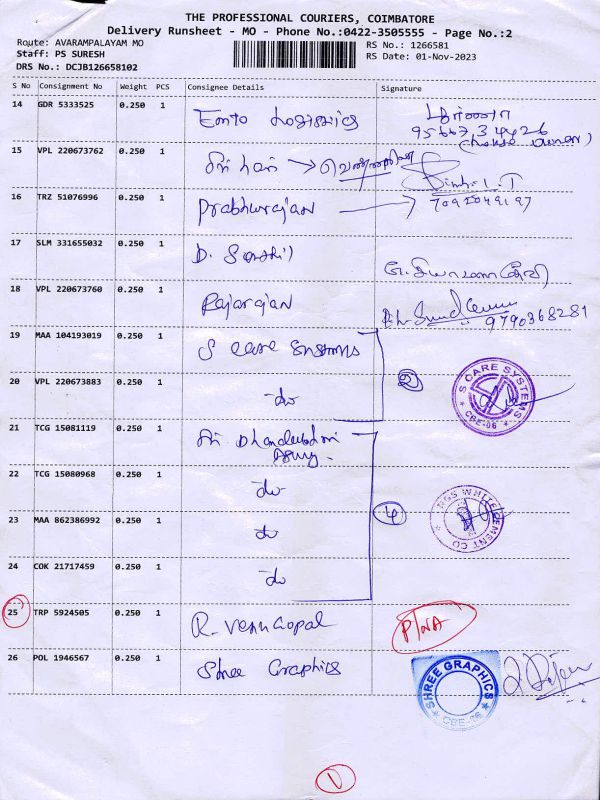 THE PROFESSIONAL COURIERS, COIMBATORE
Delivery Runsheet - MO - Phone No.:0422-3505555 - Page No.:2
Route: AVARAMPALAYAM MO
Staff: PS SURESH
DRS No.: DCJB126658102
RS No.: 1266581
RS Date: 01-Nov-2023
S No Consignment No Weight PCS Consignee Details Signature
14 GDR 5333525 0.250 1 Logistics
15 VPL 220673762 0.250 1
16 TRZ 51076996 0.250 1 Prabhurajan 7092049197
17 SLM 331655032 0.250 1 D. Senthil
18 VPL 220673760 0.250 1 Rajarajan 9790368281
19 MAA 104193019 0.250 1 S care systems
20 VPL 220673883 0.250 1 do 2 S CARE SYSTEMS CBE-06
21 TCG 15081119 0.250 1 Sri
22 TCG 15080968 0.250 1 do
23 MAA 862386992 0.250 1 do 4 WHITE CEMENT CO
24 COK 21717459 0.250 1 do
25 TRP 5924505 0.250 1 R. Venugopal P/NA
26 POL 1946567 0.250 1 Shree Graphics SHREE GRAPHICS CBE-06
1